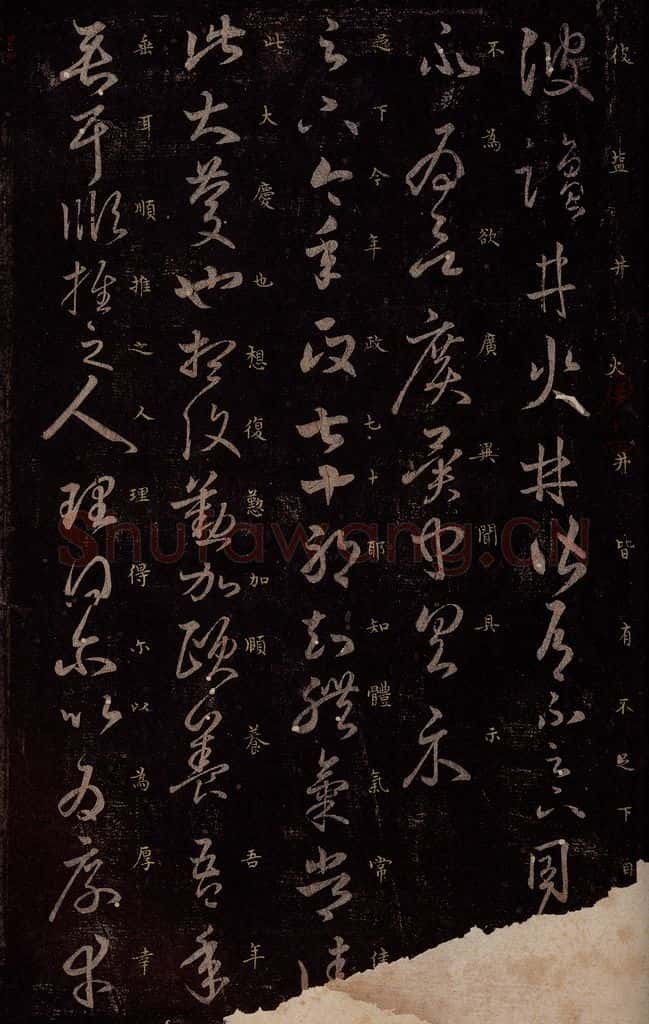 彼盐井火井皆有不足下目
彼鹽井火井皆有不足下目
不為欲廣異聞具示
不為欲廣異聞具示
足下今年政七十耶知體氣常佳
足下今年政七十耶知體氣常佳
此大慶也想復懃加頤養吾年
此大慶也想復懃加頤養吾年
垂耳順推之人理得尔以為厚幸
垂耳順推之人理得尔以為厚幸
Shufawang.CN